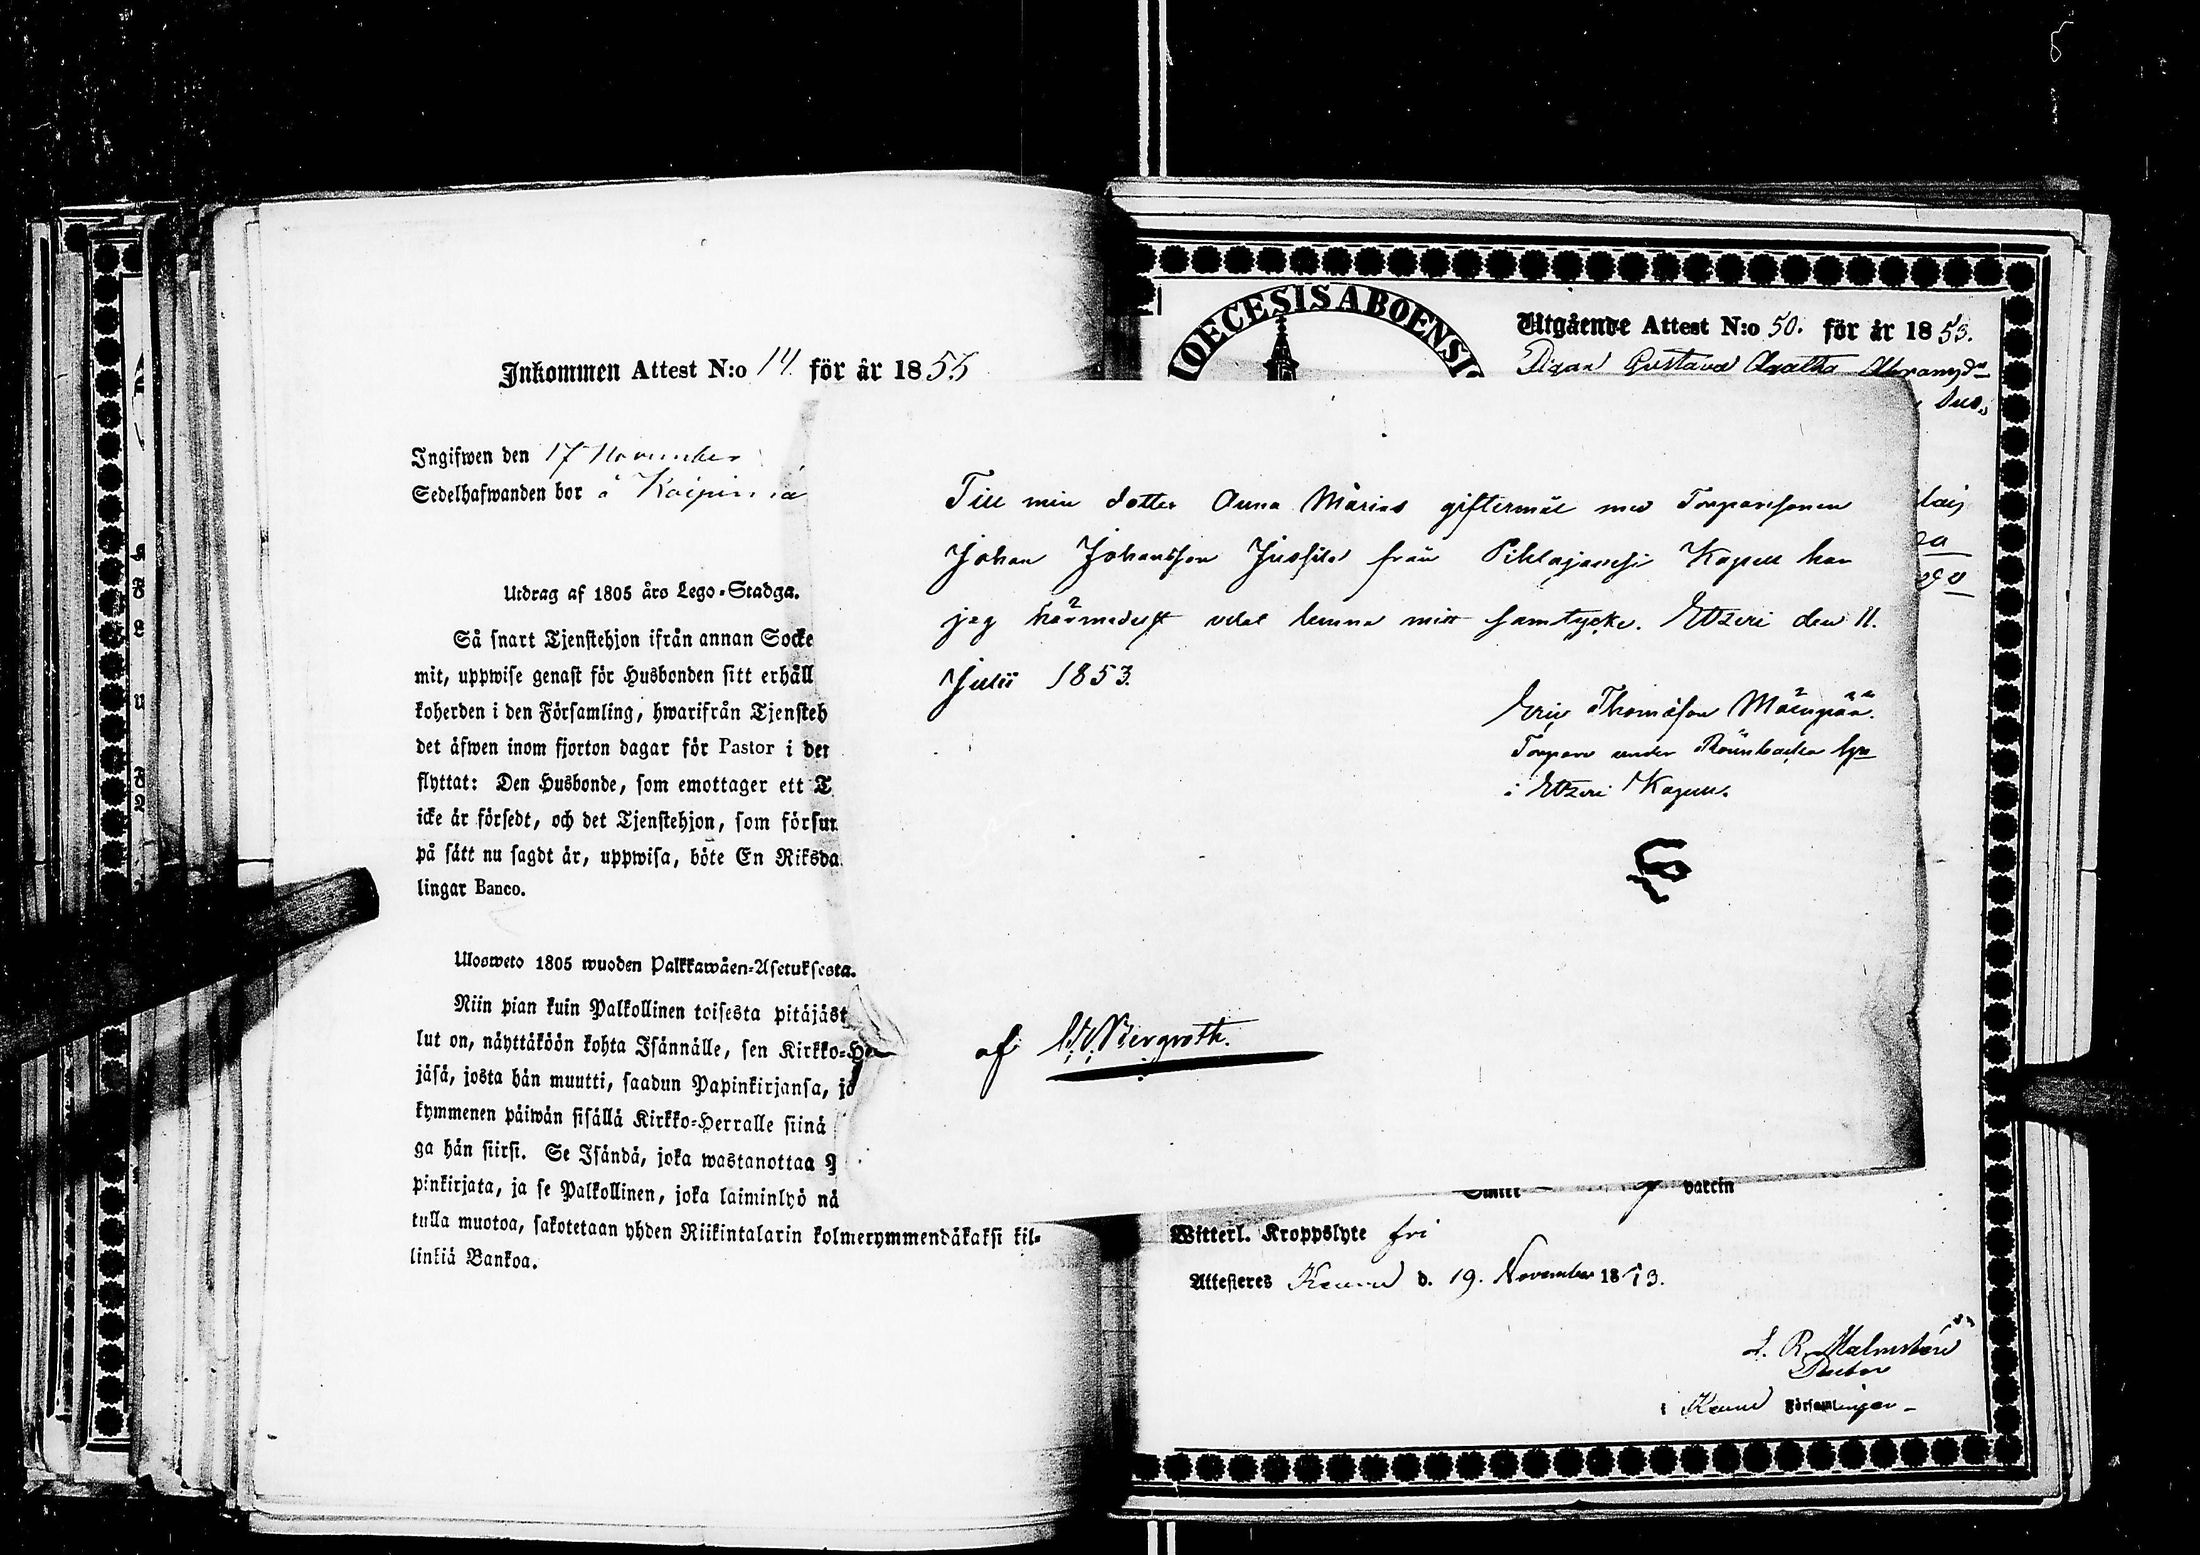 Inkommen Attest N:o 14. för år 1855
Ingifwen den 17 November
Sedelhafwanden bor å
Utdrag af 1805 års Lego-Stadga.
Så snart Tjenstehjon ifrån annan Socke
mit, uppwise genast för Husbonden sitt erhåll
koherden i den Församling, hwarifrån Tjensteh
det äfwen inom fjorton dagar för Pastor i det
flyttat: Den Husbonde, som emottager ett T
icke är försedt, och det Tjenstehjon, som försum
på sätt nu sagdt är, uppwisa, böte En Riksda
lingar Banco.
Ulosweto 1805 wuoden Palkkawäen-Asetuksesta.
Niin pian kuin Palkollinen toisesta pitäjäst
lut on, näyttäköön kohta Isännälle, sen Kirkko-He
jäsä, josta hän muutti, saadun Papinkirjansa, jo
kymmenen päiwän sisällä Kirkko-Herralle siinä
ga hän siirsi. Se Isändä, joka wastanottaa P
pinkirjata, ja se Palkollinen, joka laiminlyö nä
tulla muotoa, sakotetaan yhden Riikintalarin kolmekymmendäkaksi kil-
linkiä Bankoa.
Till min dotter Anna Marias giftermål med Torparesonen
Johan Johansson Jussila från Pihlajavesi Kapell har
jag härmedelst velat lemna mitt samtycke. Etzeri den 11.
Julii 1853.
Eric Thomasson Mäenpää.
Torpare under
i Etzeri Kapell.
af Bergroth.
DIOECESIS ABOENSIS
Utgående Attest N:o 50. för år 1853.
Pigan Gustava Agatha Abramsdr
Witterl. Kroppslyte fri
Attesteras Keuru d. 19. November 1853.
Pastor
i Keuru Församlingen